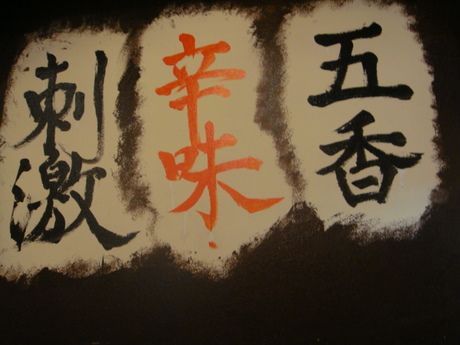 五香
辛味
刺激